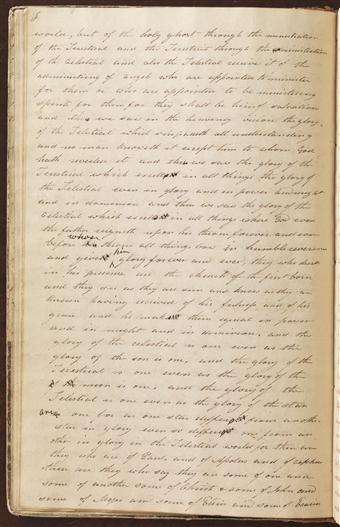 world, but of the holy ghost through the ministration
of the Terestrial and the Terestrial through the ministration
of the Celestial and also the Telestial receive it of the
administering of angels who are appointed to minister
for them or who are appointed to be ministering
spirits for them for they shall be heirs of salvation
and thus we saw in the heavenly vision the glory
of the Telestial which surpasseth all understanding
and no man knoweth it except him to whom God
hath revealed it and thus we saw the glory of the
Terestrial which excels in all things the glory of
the Telestial even in glory and in power and in might
and in dominion and thus we saw the glory of the
Celestial which excels in all things where God even
the father reigneth upon his throne forever and ever
before whose throne all things bow in humble reverence
and give him glory forever and ever, they who dwell
in his presence are the church of the first born
and they see as they are seen and know as they are
known having received of his fulness and of his
grace and he makes them equal in power
and in might and in dominion, and the
glory of the celestial is one even as the
glory of the sun is one, and the glory of the
Terestrial is one even as the glory of the
moon is one, and the glory of the
Telestial is one even as the glory of the stars
are one for as one star differs from another
star in glory even so differs one from an
other in glory in the Telestial world for these are
they who are of Paul, and of Apolos and of cephas
these are they who say they are some of one and
some of another some of Christ & some of John and
some of Moses and some of Elias and some of Esaias